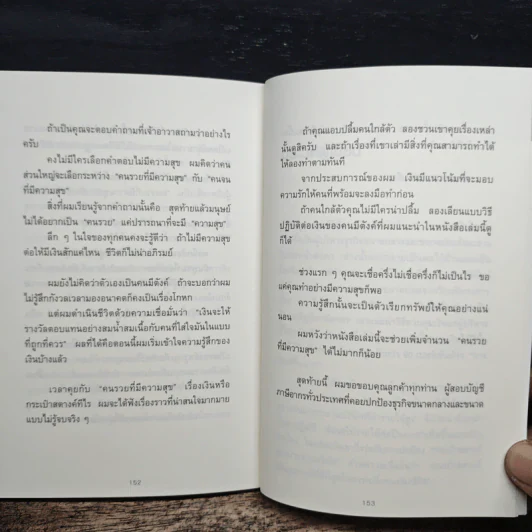 ถ้าเป็นคุณจะตอบคำถามที่เจ้าอาวาสถามว่าอย่างไร
ครับ
คงไม่มีใครเลือกคำตอบไม่มีความสุข ผมคิดว่าคน
ส่วนใหญ่จะเลือกระหว่าง “คนรวยที่มีความสุข” กับ “คนจน
ที่มีความสุข”
สิ่งที่ผมเรียนรู้จากคำถามนั้นคือ สุดท้ายแล้วมนุษย์
ไม่ได้อยากเป็น “คนรวย” แค่ปรารถนาที่จะมี “ความสุข”
ลึก ๆ ในใจของทุกคนคงจะรู้ดีว่า ถ้าไม่มีความสุข
ต่อให้มีเงินสักแค่ไหน ชีวิตก็ไม่น่าอภิรมย์
ผมยังไม่คิดว่าตัวเองเป็นคนมีตังค์ ถ้าจะบอกว่าผม
ไม่รู้สึกกังวลเวลามองอนาคตก็คงเป็นเรื่องโกหก
แต่ผมดำเนินชีวิตด้วยความเชื่อมั่นว่า “เงินจะให้
รางวัลตอบแทนอย่างสมน้ำสมเนื้อกับคนที่ใส่ใจมันในแบบ
ที่ถูกที่ควร” ผลที่ได้คือตอนนี้ผมเริ่มเข้าใจความรู้สึกของ
เงินบ้างแล้ว
เวลาคุยกับ “คนรวยที่มีความสุข” เรื่องเงินหรือ
กระเป๋าสตางค์ทีไร ผมจะได้ฟังเรื่องราวที่น่าสนใจมากมาย
แบบไม่รู้จบจริง ๆ
152
ถ้าคุณแอบปลื้มคนใกล้ตัว ลองชวนเขาคุยเรื่องเหล่า
นั้นดูสิครับ และถ้าเรื่องที่เขาเล่ามีสิ่งที่คุณสามารถทำได้
ให้ลองทำตามทันที
จากประสบการณ์ของผม เงินมีแนวโน้มที่จะมอบ
ความรักให้คนที่พร้อมจะลงมือทำก่อน
ถ้าคนใกล้ตัวคุณไม่มีใครน่าปลื้ม ลองเลียนแบบวิธี
ปฏิบัติต่อเงินของคนมีตังค์ที่ผมแนะนำในหนังสือเล่มนี้ดู
ก็ได้
ช่วงแรก ๆ คุณจะเชื่อครึ่งไม่เชื่อครึ่งก็ไม่เป็นไร ขอ
แค่คุณทำอย่างมีความสุขก็พอ
ความรู้สึกนั้นจะเป็นตัวเรียกทรัพย์ให้คุณอย่างแน่
นอน
ผมหวังว่าหนังสือเล่มนี้จะช่วยเพิ่มจำนวน “คนรวย
ที่มีความสุข” ได้ไม่มากก็น้อย
สุดท้ายนี้ ผมขอขอบคุณลูกค้าทุกท่าน ผู้สอบบัญชี
ภาษีอากรทั่วประเทศที่คอยปกป้องธุรกิจขนาดกลางและขนาด
153